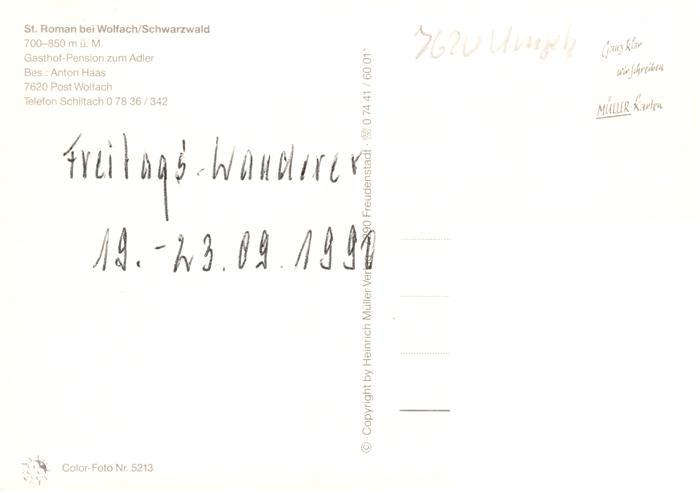 St. Roman bei Wolfach/Schwarzwald
700–850 m ü. M.
Gasthof-Pension zum Adler
Bes.: Anton Haas
7620 Post Wolfach
Telefon Schiltach 0 78 36 / 342
Freitag's-Wanderer
19.-23.09.1990
Color-Foto Nr. 5213
© Copyright by Heinrich Müller 290 Freudenstadt · ☏ 0 74 41 / 60 01
7620
Ganz klar
wir schreiben
MÜLLER-Karten